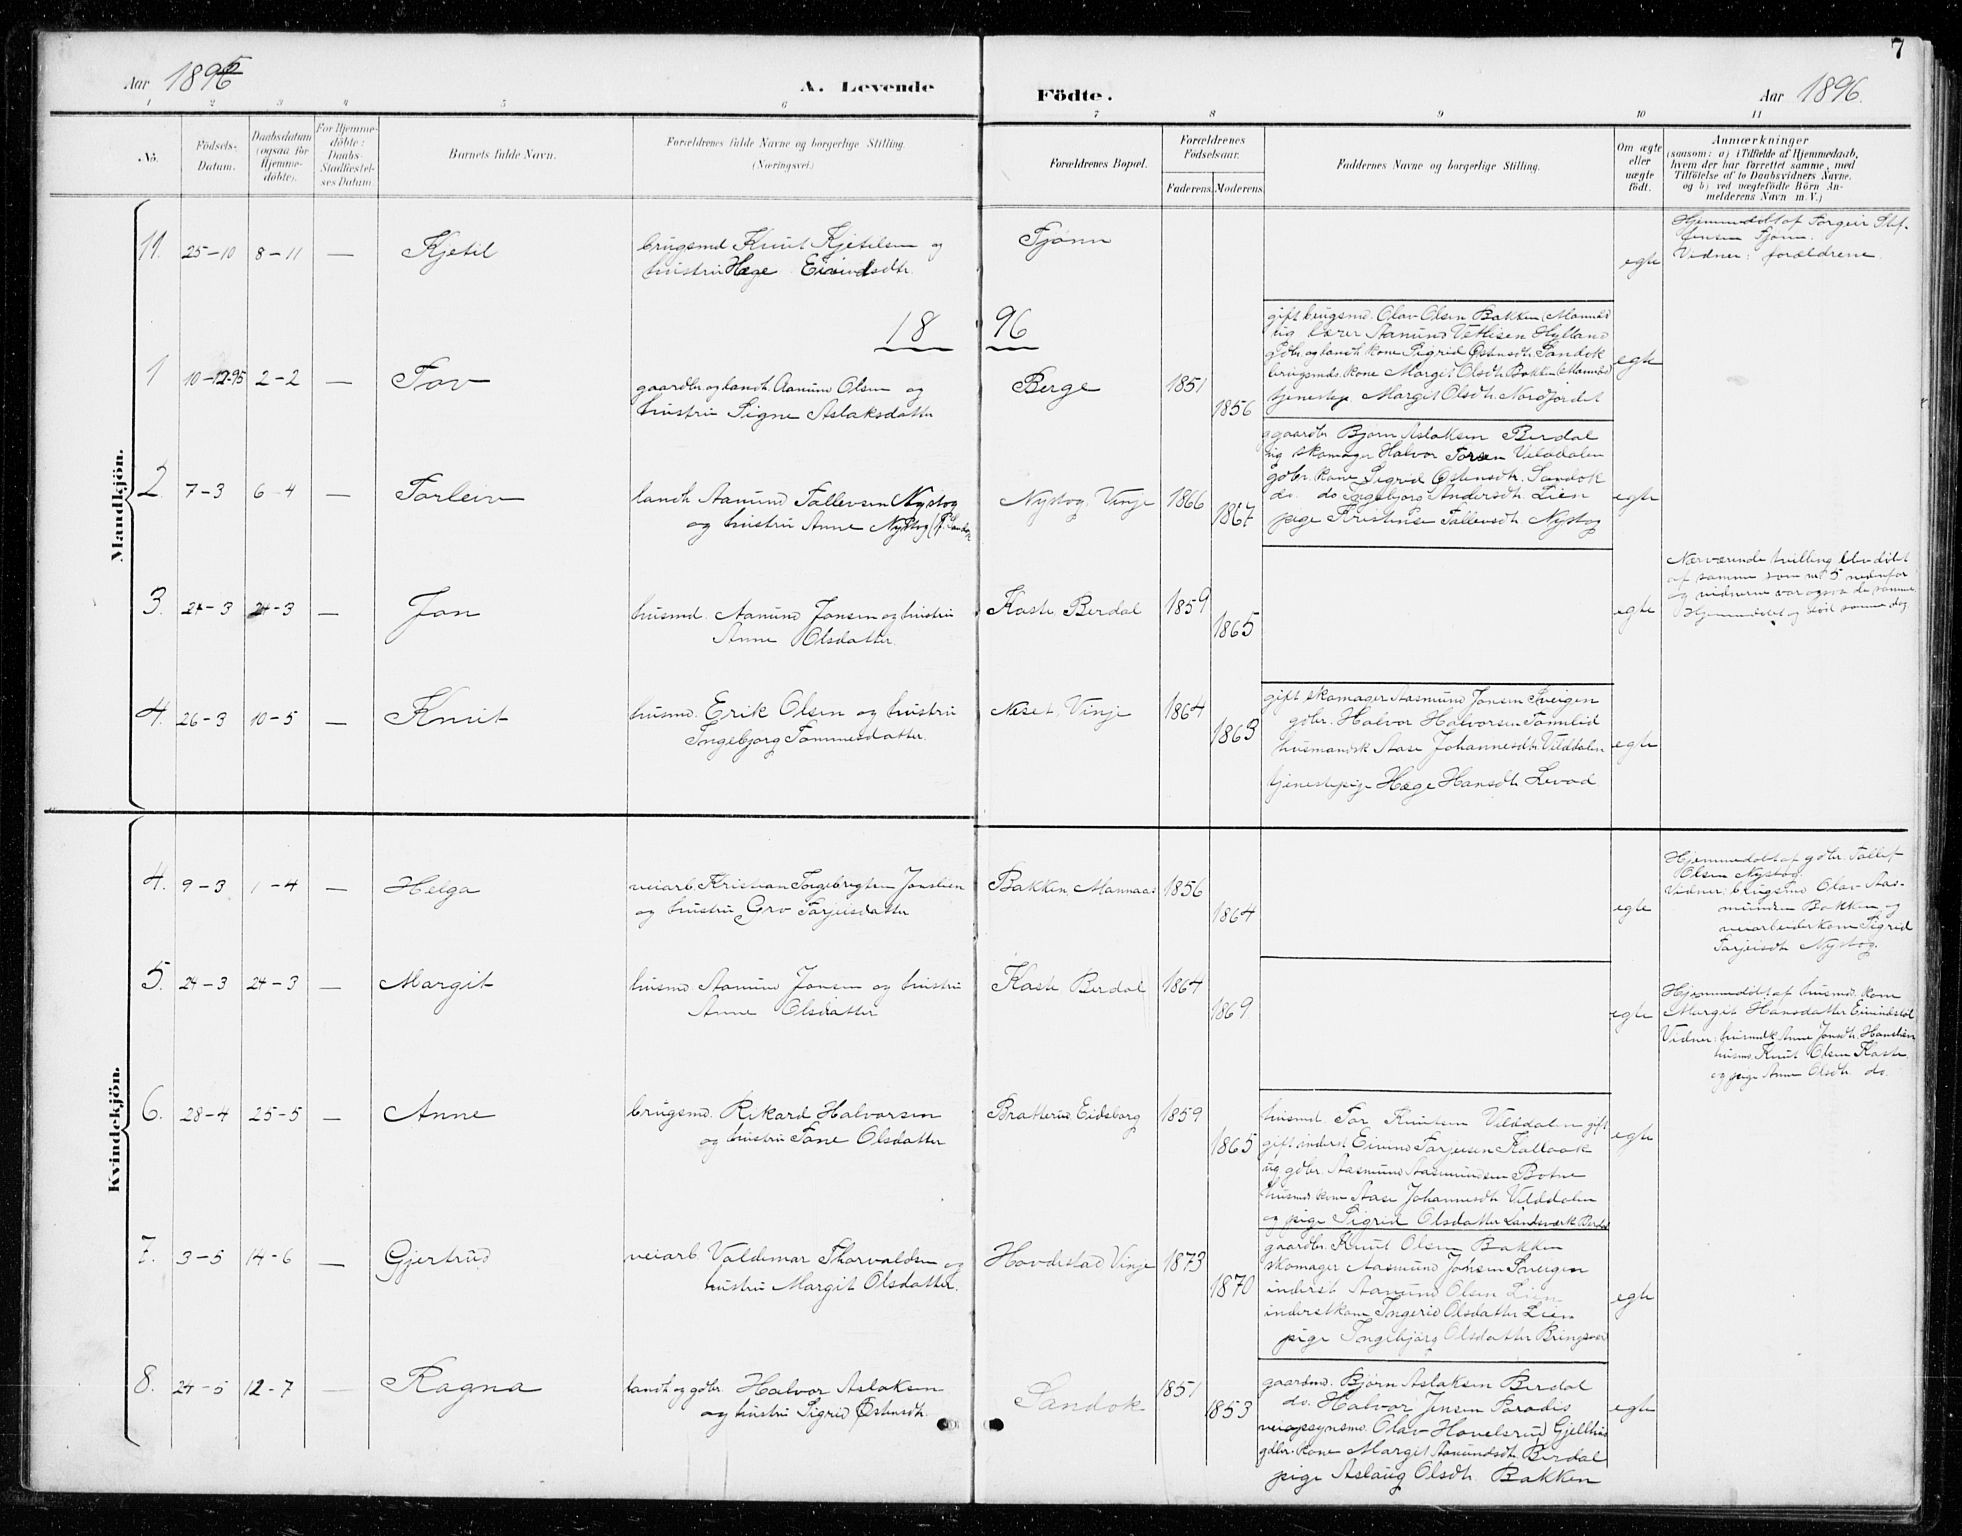 7
Aar 1895
A. Levende Födte.
Aar 1896.
1 2 3 4 5 6 7 8 9 10 11
No.
Födsels-
Datum.
Daabsdatum
(ogsaa for
Hjemme-
döbte).
For Hjemme-
döbte:
Daabs-
Stadfæstel-
ses Datum.
Barnets fulde Navn.
Forældrenes fulde Navne og borgerlige Stilling.
(Næringsvei.)
Forældrenes Bopæl.
Forældrenes
Födselsaar.
Faderens. Moderens.
Faddernes Navne og borgerlige Stilling.
Om ægte
eller
uægte
födt.
Anmærkninger
(saasom: a) i Tilfælde af Hjemmedaab,
hvem der har forrettet samme, med
Tilföielse af to Daabsvidners Navne,
og b) ved uægtefödte Börn An-
melderens Navn m. V.)
Mandkjön.
11. 25-10 8-11 — Kjetil
brugsmd Knut Kjetilsen og
hustru Hæge Eivindsdtr.
Fjønn
egte
Hjemmedøbt af Torgeir Stef-
fensen Fjønn.
Vidner: forældrene.
18 96
1 10-12-95 2-2 — Tov
gaardbr. og landh. Aanund Olsen og
hustru Signe Aslaksdatter
Berge 1851 1856
gift brugsmd. Olav Olsen Bakken (Mannås)
ug lærer Aanund Vetlisen Hylland
gdbr. og landh. kone Sigrid Østensdtr. Sandok
brugsmds. kone Margit Olsdtr. Bakken (Mannås)
tjenestep. Margit Olsdtr. Nordfjordet
egte
2 7-3 6-4 — Torleiv
landh Aanund Tallevsen Nystog
og hustru Anne Nystog
Nystog, Vinje 1866 1867
gaardbr Bjørn Aslaksen Berdal
ug skomager Halvor Torsen Vilddalen
gdbr. kone Sigrid Østensdtr. Sandok
do. do Ingebjørg Andersdtr. Lien
pige Kristense Tallevsdtr. Nystog
egte
3. 24-3 24-3 — Jon
husmd. Aanund Jonsen og hustru
Anne Olsdatter
Kaste, Berdal 1859 1865
egte
Nærværende tvilling blev døbt
af samme som nr 5 nedenfor
og vidnerne var ogsaa de samme.
Hjemmedøbt og død samme dag
4. 26-3 10-5 — Knut
husmd. Erik Olsen og hustru
Ingebjorg Tommesdatter.
Neset, Vinje 1864 1863
gift skomager Aasmund Jonsen Sveigen
gdbr. Halvor Halvorsen Tomlid
husmandsk Aase Johannesdtr. Vilddalen
tjenestepige Hæge Hansdtr. Levad
egte
Kvindekjön.
4. 9-3 1-4 — Helga
veiarb. Kristian Torgebregtsen Jonslien
og hustru Gro Tarjeisdatter
Bakken Mannaas 1856 1864
egte
Hjemmedøbt af gdbr. Tallef
Olsen Nystog.
Vidner: brugsmd Olav Aas-
mundsen Bakken og
veiarbeiderkone Sigrid
Tarjeisdtr Nystog.
5. 24-3 24-3 — Margit
husmd Aanund Jonsen og hustru
Anne Olsdatter
Kaste Berdal 1864 1869.
egte
Hjemmedøbt af husmd. kone
Margit Hansdatter Eivindstøl
Vidner: husmdk Anne Jonsdtr. Hanslien
husmd Knut Olsen Kaste
og pige Anne Olsdtr. do.
6. 28-4 25-5 — Anne
brugsmd. Rikard Halvorsen
og hustru Tone Olsdatter
Bratterud Eidsborg 1859 1865
husmd Tor Knutsen Vilddalen gift
gift inderst Eivind Tarjeisen Kallaak
ug gdbr. Aasmund Aasmundsen Botne
husmd kone Aase Johannesdtr Vilddalen
og pige Sigrid Olsdatter Landsværk Berdal
egte
7. 3-5 14-6 — Gjertrud
veiarb. Valdemar Thorvaldsen og
hustru Margit Olsdatter.
Hovdestad Vinje 1873 1870
gaardbr. Knut Olsen Bakken
skomager Aasmund Jonsen Sveigen
inderst Aanund Olsen Lien
inderstkone Ingerid Olsdatter Lien
pige Ingebjørg Olsdatter Bringsver
egte
8. 24-5 12-7 — Ragna
landh og gdbr. Halvor Aslaksen
og hustru Sigrid Østensdtr.
Sandok 1851 1853
gaardmd. Bjørn Aslaksen Berdal
do. Halvor Jensen Paradis
veiopsynsmd. Olav Hovelsrud Gjellhus
gdbr. kone Margit Aanundsdtr. Berdal
pige Aslaug Olsdtr. Bakken
egte